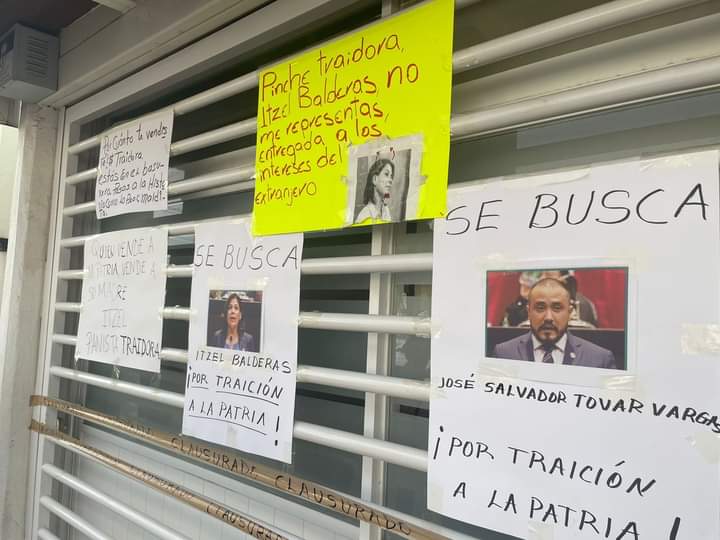 Por Cuánto te vendes
Traidora
estás en el basu-
Pinche traidora,
Itzel Balderas, no
me representas,
entregada a los
intereses del
extranjero
QUIEN VENDE A
PATRIA VENDE A
SU MADRE
ITZEL
PANISTA TRAIDORA
SE BUSCA
ITZEL BALDERAS
¡POR TRAICIÓN
A LA PATRIA!
SE BUSCA
JOSÉ SALVADOR TOVAR VARGAS
¡POR TRAICIÓN
A LA PATRIA!
CLAUSURADO CLAUSURADO
CLAUSURADO